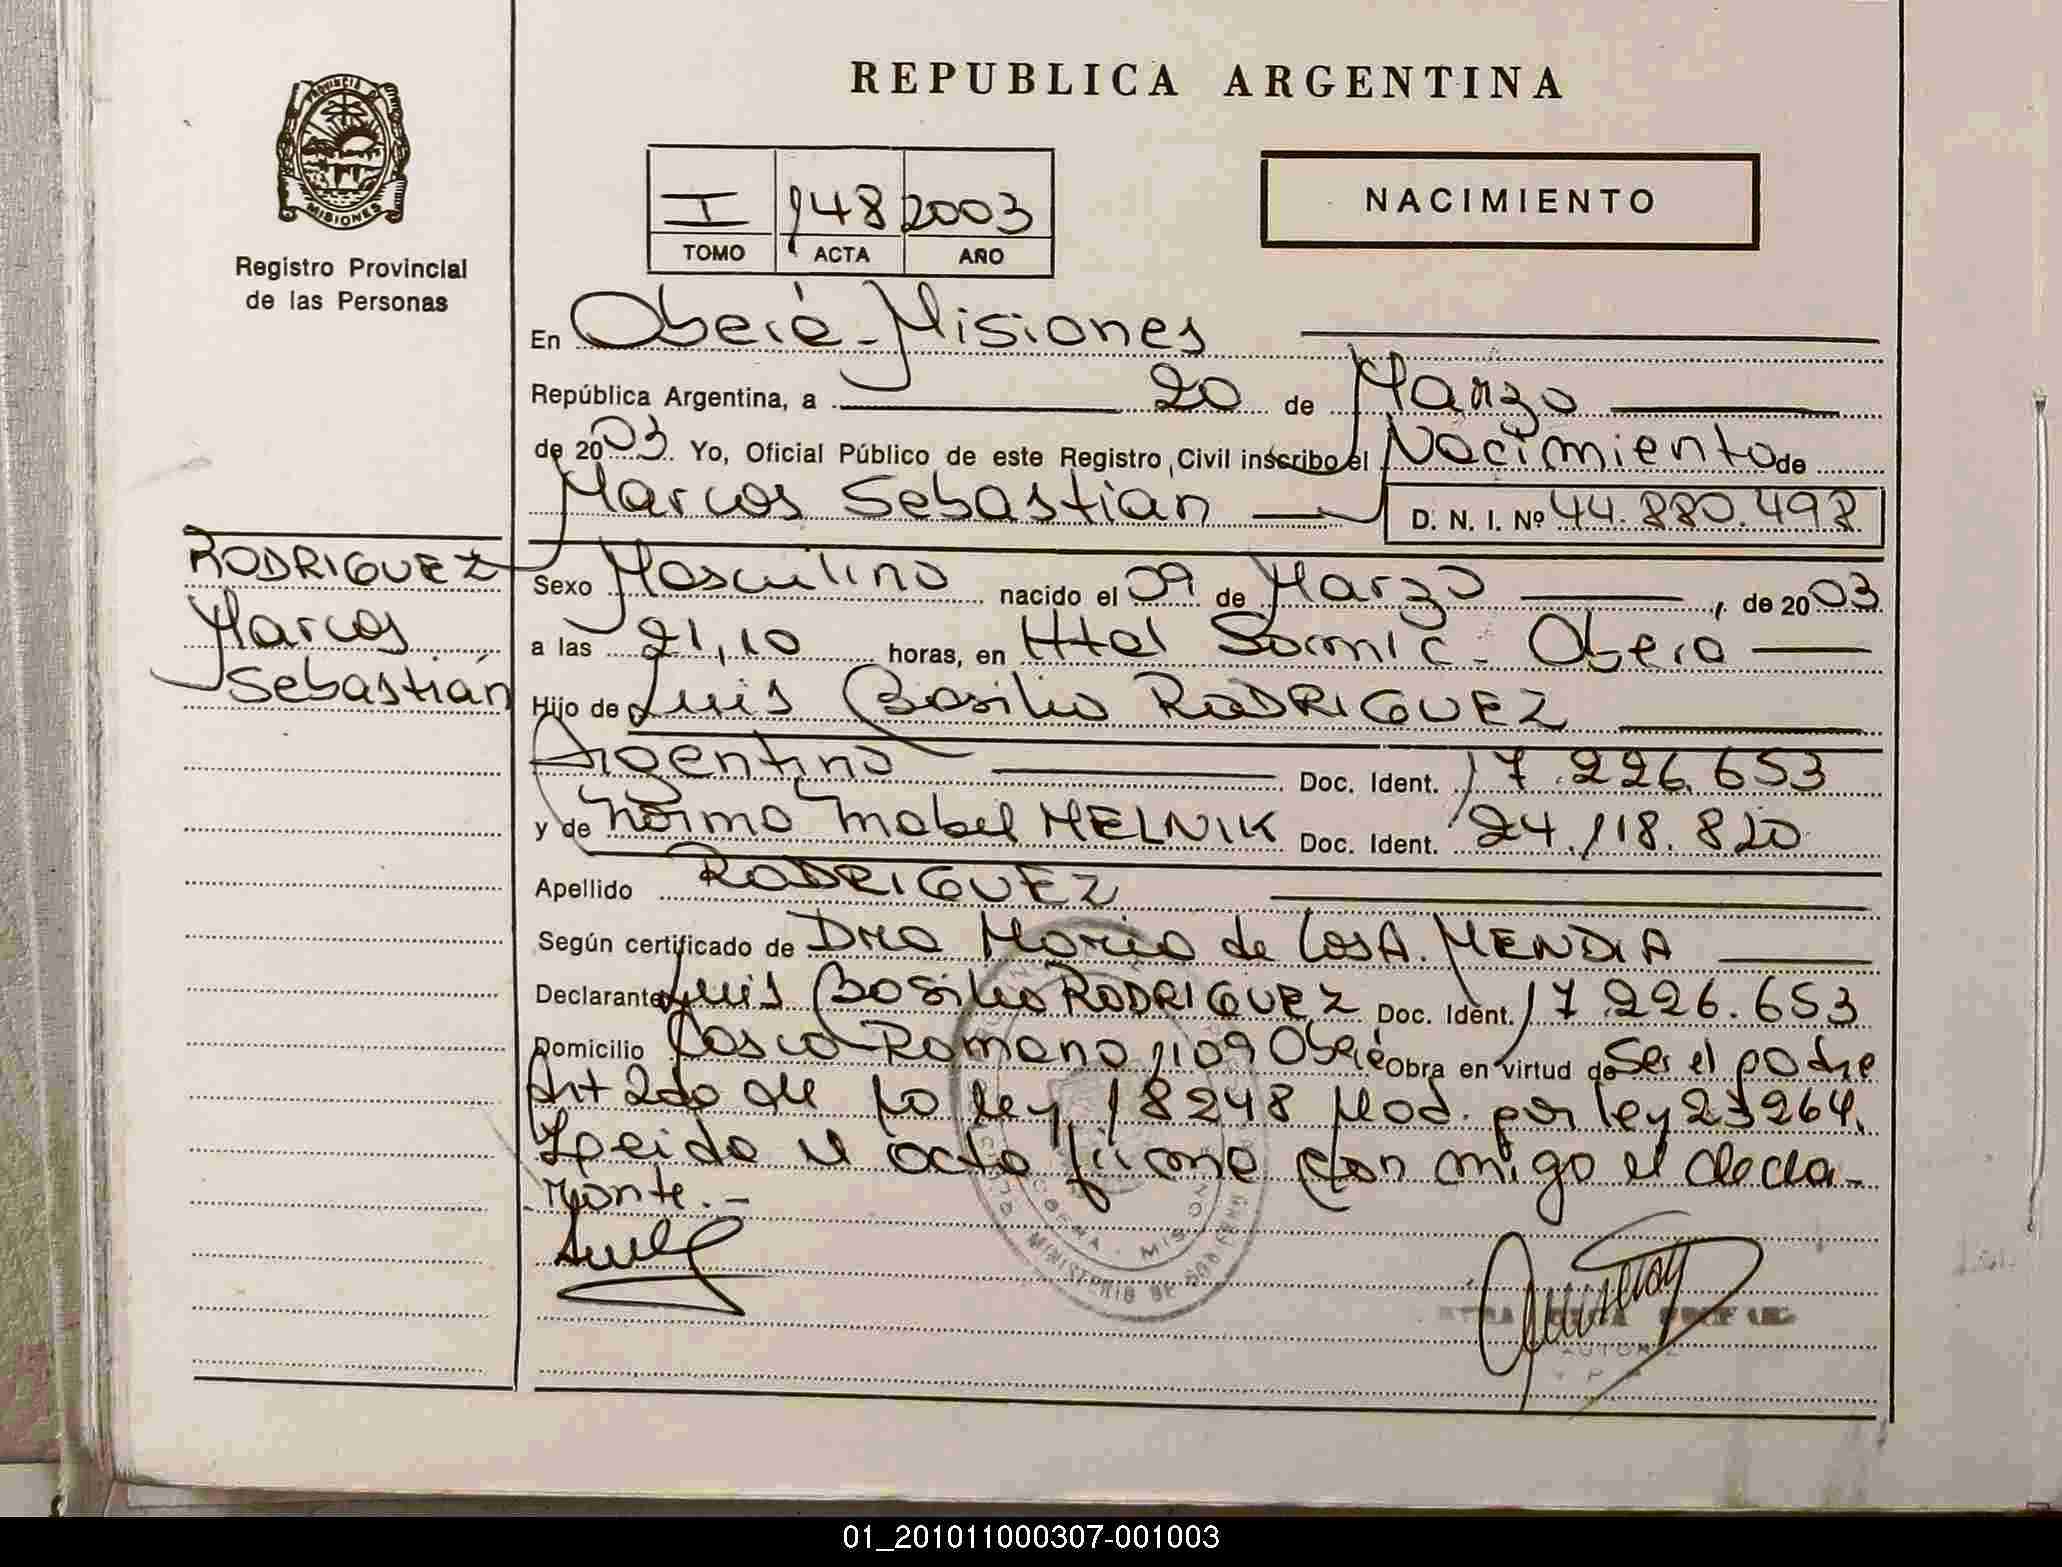 REPUBLICA ARGENTINA
PROVINCIA DE
MISIONES
Registro Provincial
de las Personas
I 148 2003
TOMO ACTA AÑO
NACIMIENTO
En Oberá - Misiones
República Argentina, a 20 de Marzo
de 2003. Yo, Oficial Público de este Registro Civil inscribo el Nacimiento de
Marcos Sebastian D. N. I. Nº 44.880.498
RODRIGUEZ
Marcos
Sebastián
Sexo Masculino nacido el 09 de Marzo, de 2003
a las 21,10 horas, en Htal Samic - Oberá
Hijo de Luis Basilio RODRIGUEZ
Argentino Doc. Ident. 17.226.653
y de Norma Mabel MELNIK Doc. Ident. 24.118.820
Apellido RODRIGUEZ
Según certificado de Dra Maria de los A. MENDIA
Declarante Luis Basilio RODRIGUEZ Doc. Ident. 17.226.653
Domicilio Romano 1109 Oberá Obra en virtud de Ser el padre
Art 2do de la ley 18248 Mod. por ley 23264.
Leido el acta firma con migo el decla-
rante.-
MINISTERIO DE GOBIERNO
MISIONES
01_201011000307-001003